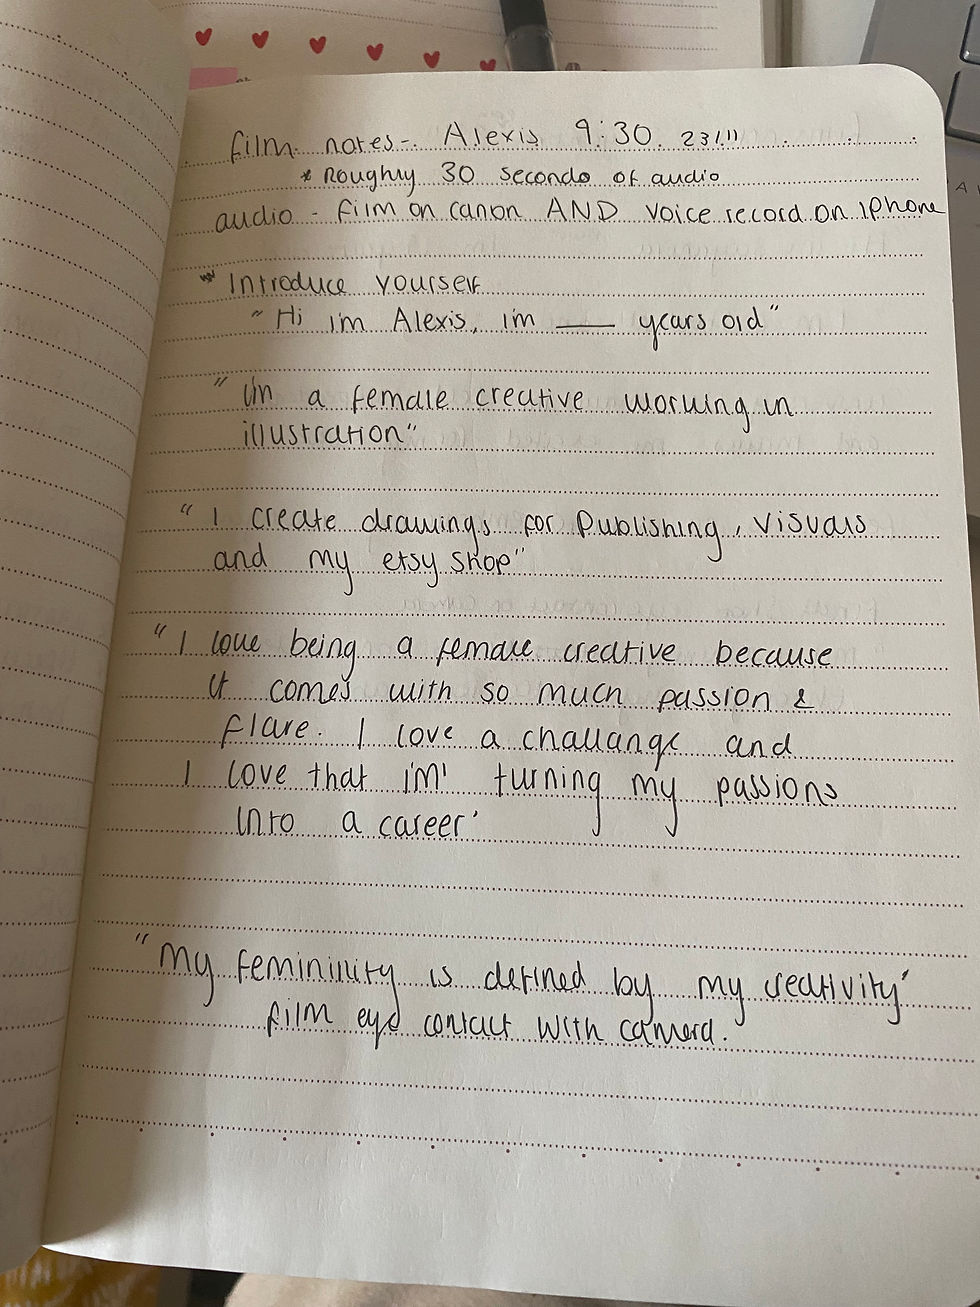 film notes - Alexis 9:30. 23/11
* Roughly 30 seconds of audio
audio - film on canon AND voice record on iphone
* Introduce yourself
"Hi i'm Alexis, i'm ___ years old"
"i'm a female creative working in
illustration"
"I create drawings for publishing, visuals
and my etsy shop"
"I love being a female creative because
it comes with so much passion &
flare. I love a challange and
I love that i'm' turning my passions
into a career'
"my femininity is defined by my creativity'
film eye contact with camera.